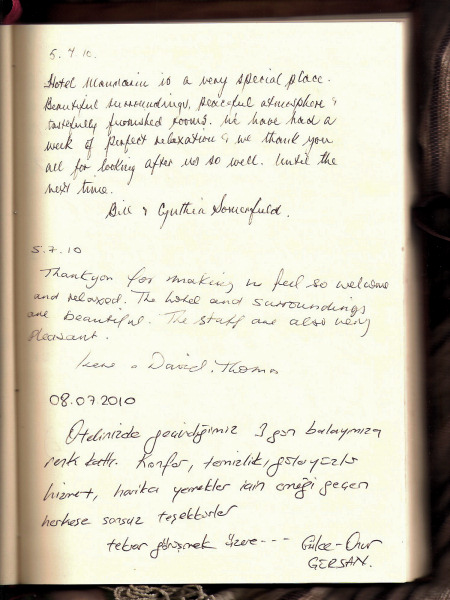 5.7.10.
Hotel Manmarin is a very special place.
Beautiful surroundings, peaceful atmosphere &
tastefully furnished rooms. We have had a
week of perfect relaxation & we thank you
all for looking after us so well. Until the
next time.
Bill & Cynthia Somerfield.
5.7.10
Thankyou for making us feel so welcome
and relaxed. The hotel and surroundings
are beautiful. The staff are also very
pleasant.
Irene & David. Thomas
08.07.2010
Otelinizde geçirdiğimiz 3 gün balayımıza
renk kattı. Konfor, temizlik, güleryüzlü
hizmet, harika yemekler için emeği geçen
herkese sonsuz teşekkürler
tekrar görüşmek üzere --- Gülce-Onur
GERSAN.